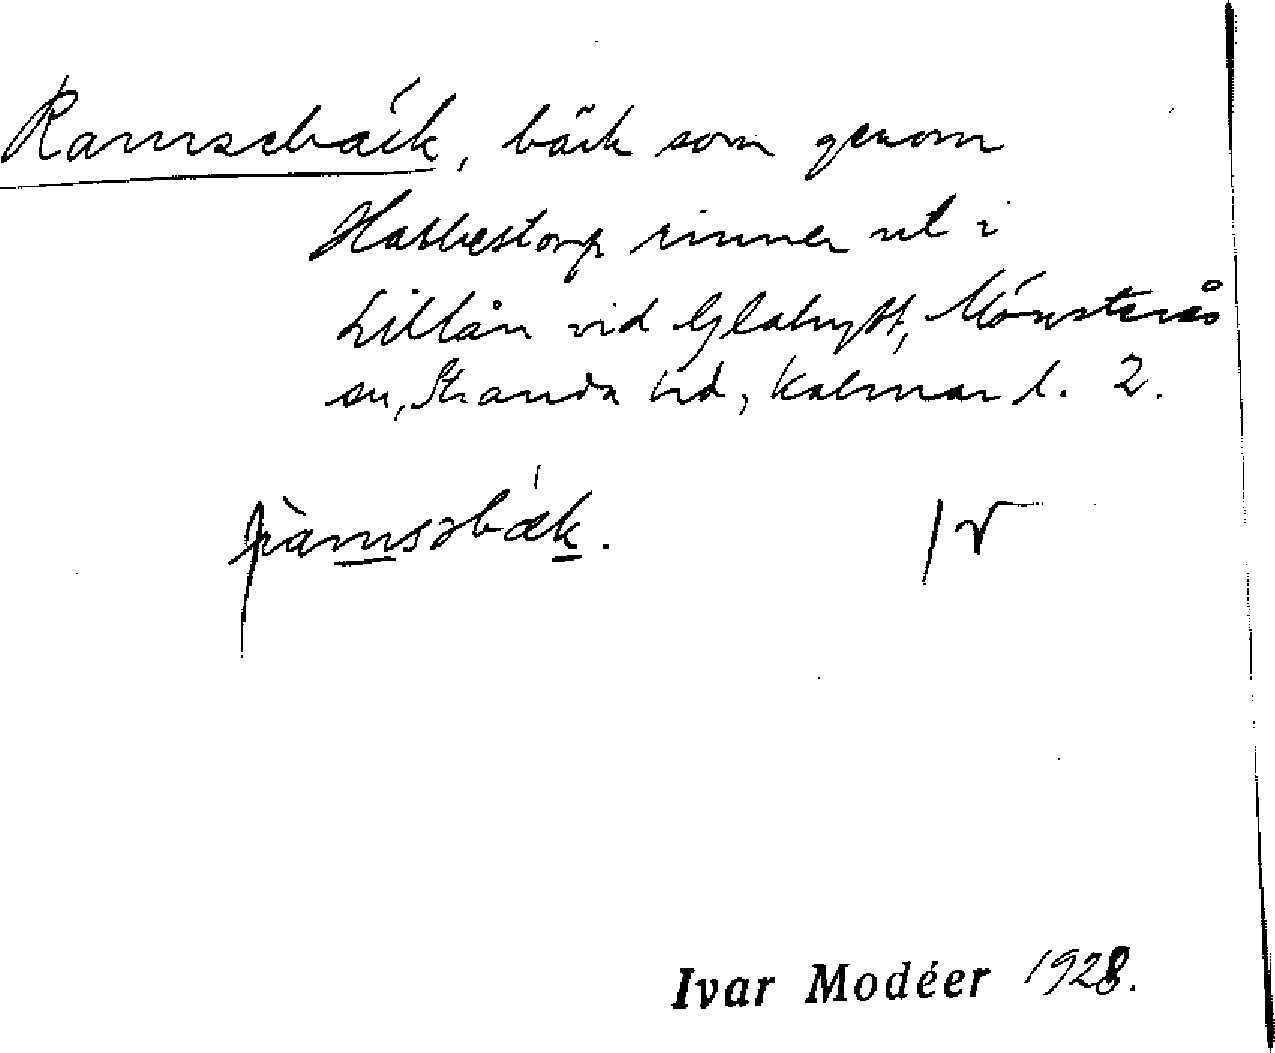 Ramsebäck, bäck som genom
Habbestorp rinner ut i
Lillån vid Glahytt, Mönsterås
sn, Stranda hd, Kalmar l. 2.
ràmsəbák.
Ivar Modéer 1928.